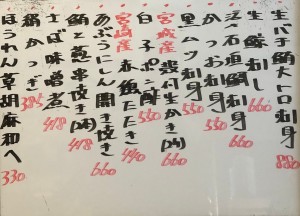 生バチ鮪大トロ刺身 880
生鯨刺し 660
活〆石垣鯛刺身 660
かつお刺身 550
黒ムツ刺身 550
白子ポン酢 550
殻付生かき(2ヶ) 660
宮崎産 赤魚たたき 440
あぶらにしん開き焼き 660
鮪と葱串焼き(2本) 418
さば味噌煮 418
鶏かつぎ 385
ほうれん草胡麻和へ 330